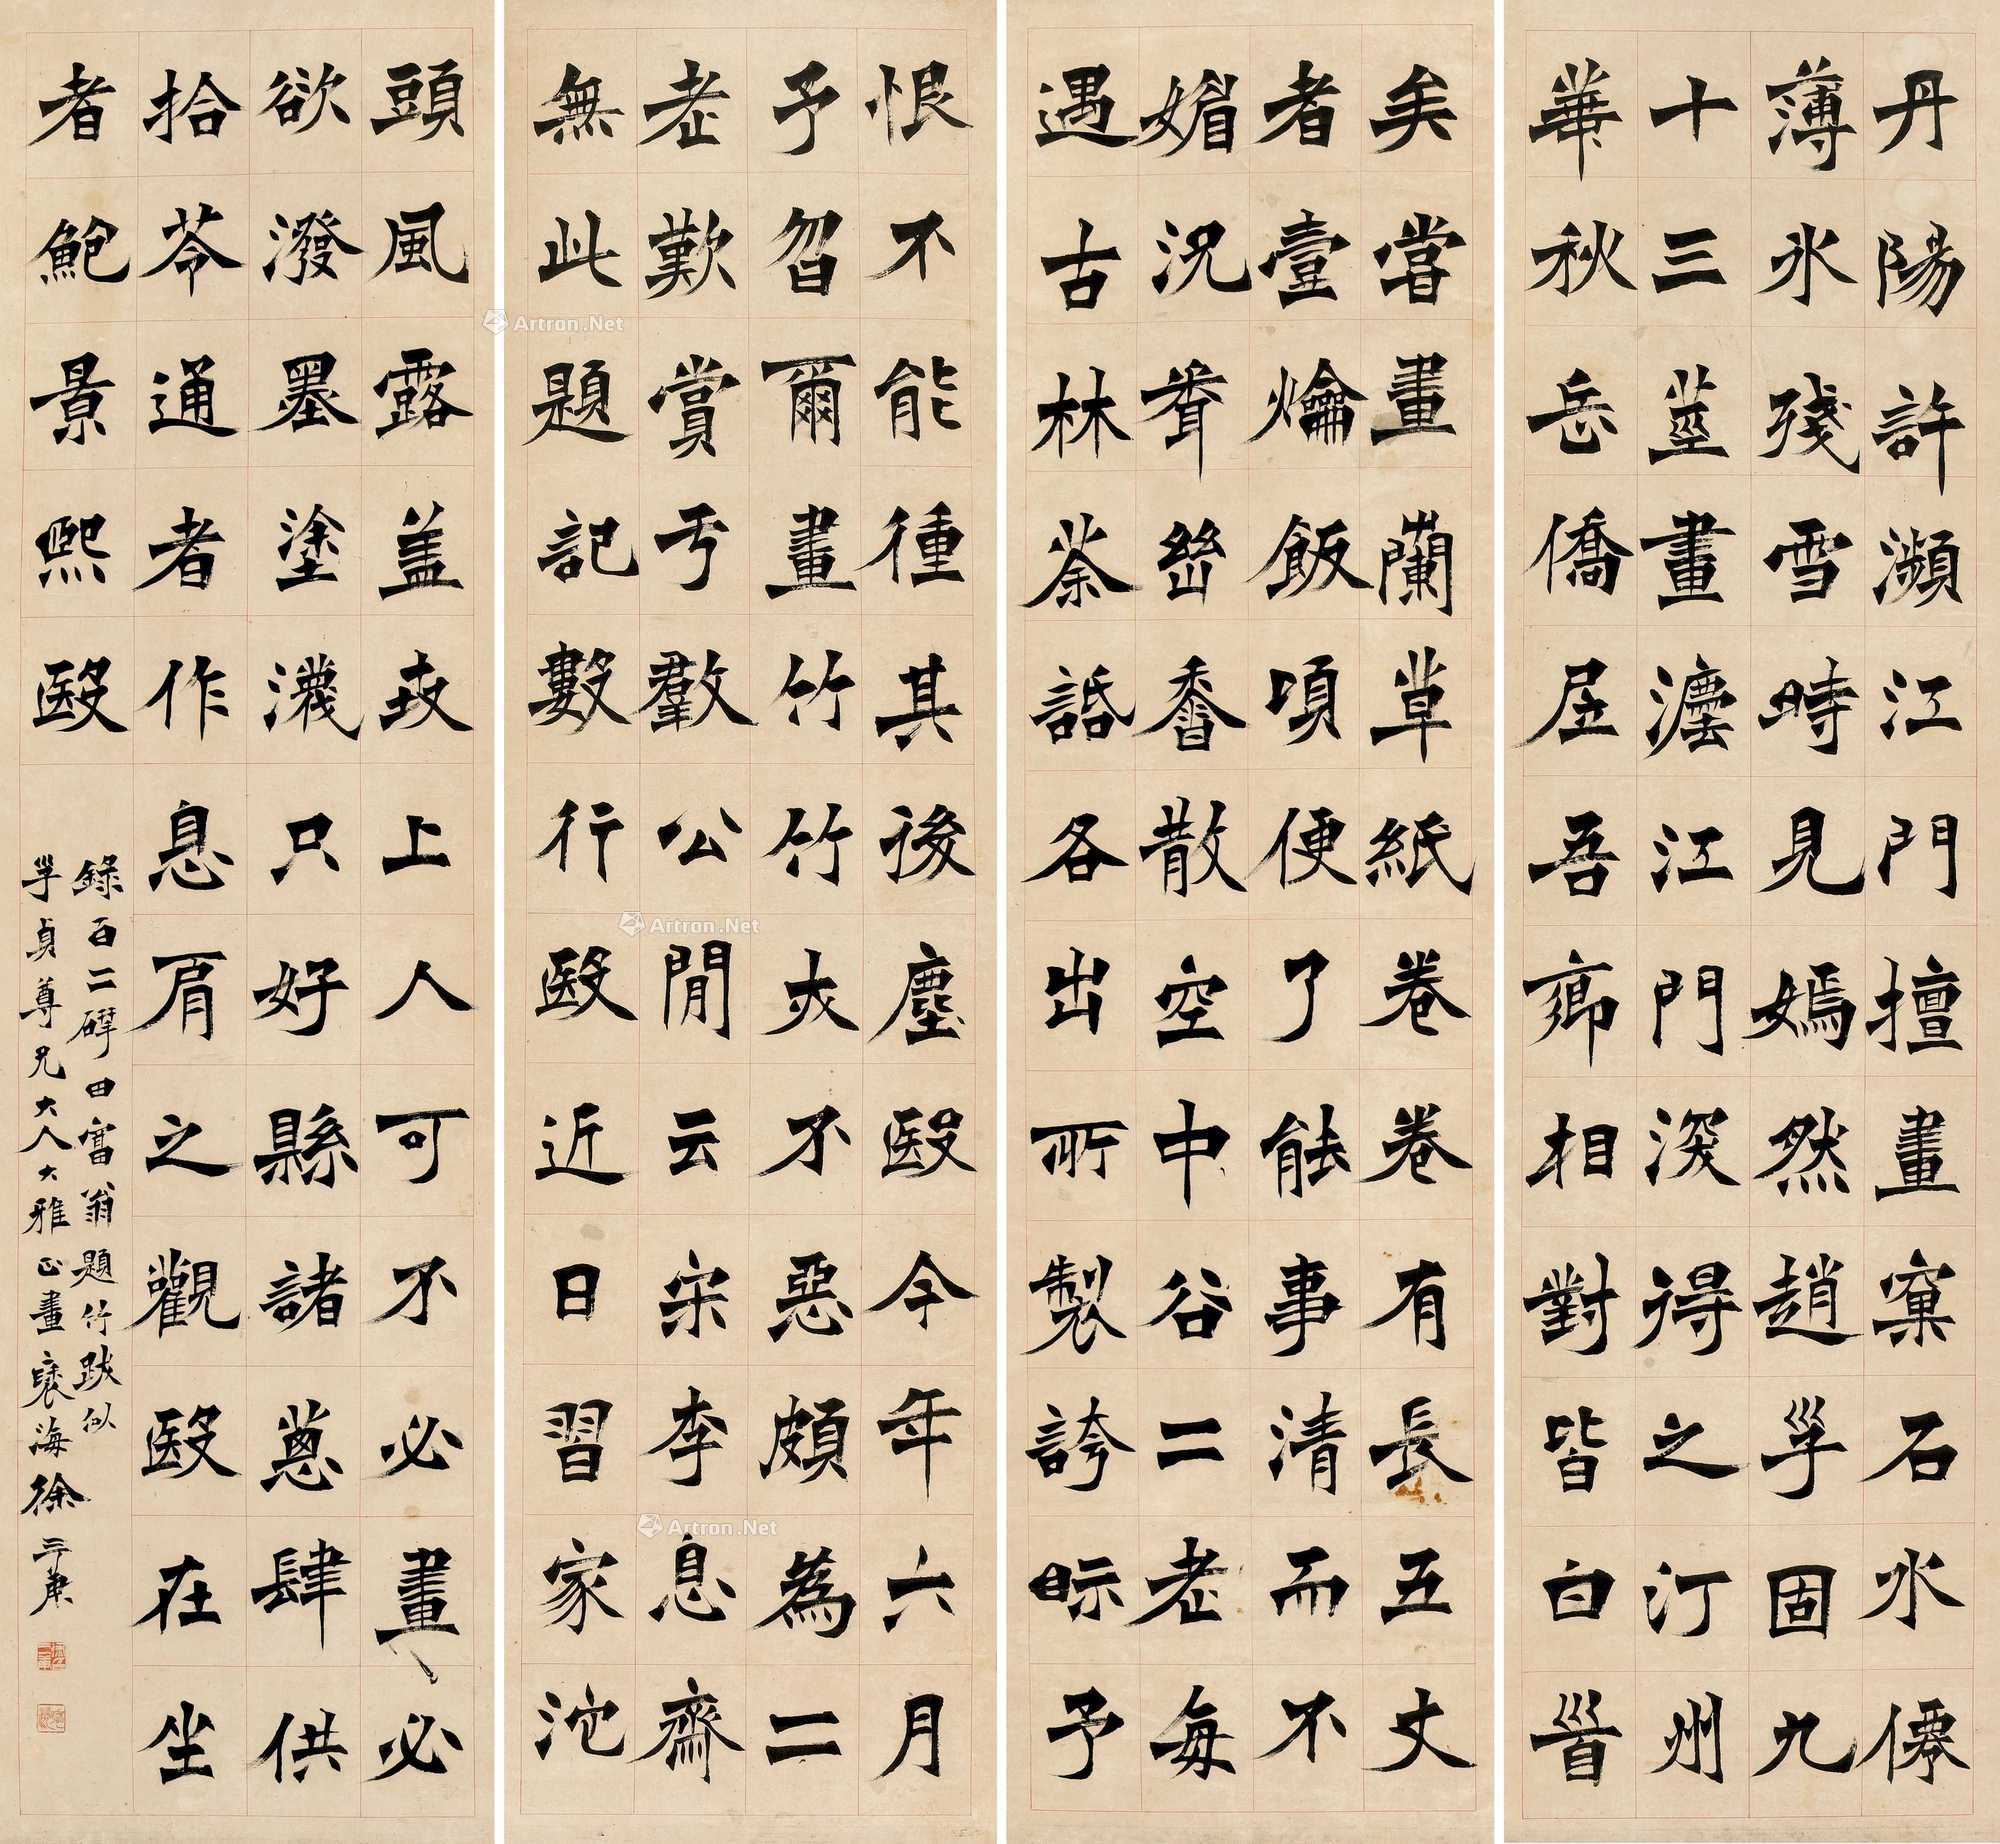 丹陽許瀕江門擅畫窠石水僊
薄氷殘雪時見嫣然趙孚固九
十三莖畫灋江門淡得之汀州
華秋岳僑居吾鄉相對皆白晉
矣嘗畫蘭草紙卷卷有長五丈
者臺爚飯頃便了能事清而不
媚況聳嶨香散空中谷二老每
遇古林荼話各出所製誇眎予
恨不能種其後塵殹今年六月
予曶爾畫竹竹夾不惡頗為二
老歎賞亏羣公閒云宋李息齋
無此題記數行殹近日習家池
頭風露蓋世上人可不必畫必
欲潑墨塗濺只好縣諸蔥肆供
拾芩通者作息肩之觀殹在坐
者鮑景熙殹
錄百二硯田富翁題竹跋似
孚貞尊兄大人大雅正畫 褎海徐三庚
Artron.Net
Artron.Net
Artron.Net